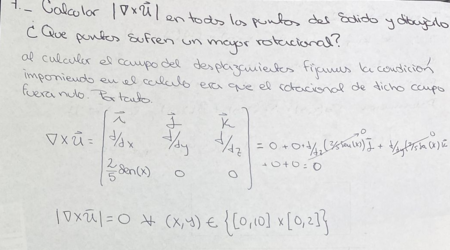 7.- Calcular |∇×ū| en todos los puntos del sólido y dibujarlo
¿Que puntos sufren un mayor rotacional?
al calcular el campo del desplazamientos fijamos la condición
imponiendo en el calculo era que el rotacional de dicho campo
fuera nulo. Por tanto.
∇×ū = | i⃗ j⃗ k⃗ |
d/dx d/dy d/dz = 0 + 0 + d/dz (2/5 sen(x)) j⃗ + d/dy (2/5 sen(x)) k⃗
2/5 sen(x) 0 0 +0+0=0
|∇×ū| = 0 ∀ (x,y) ∈ {[0,10] × [0,2]}